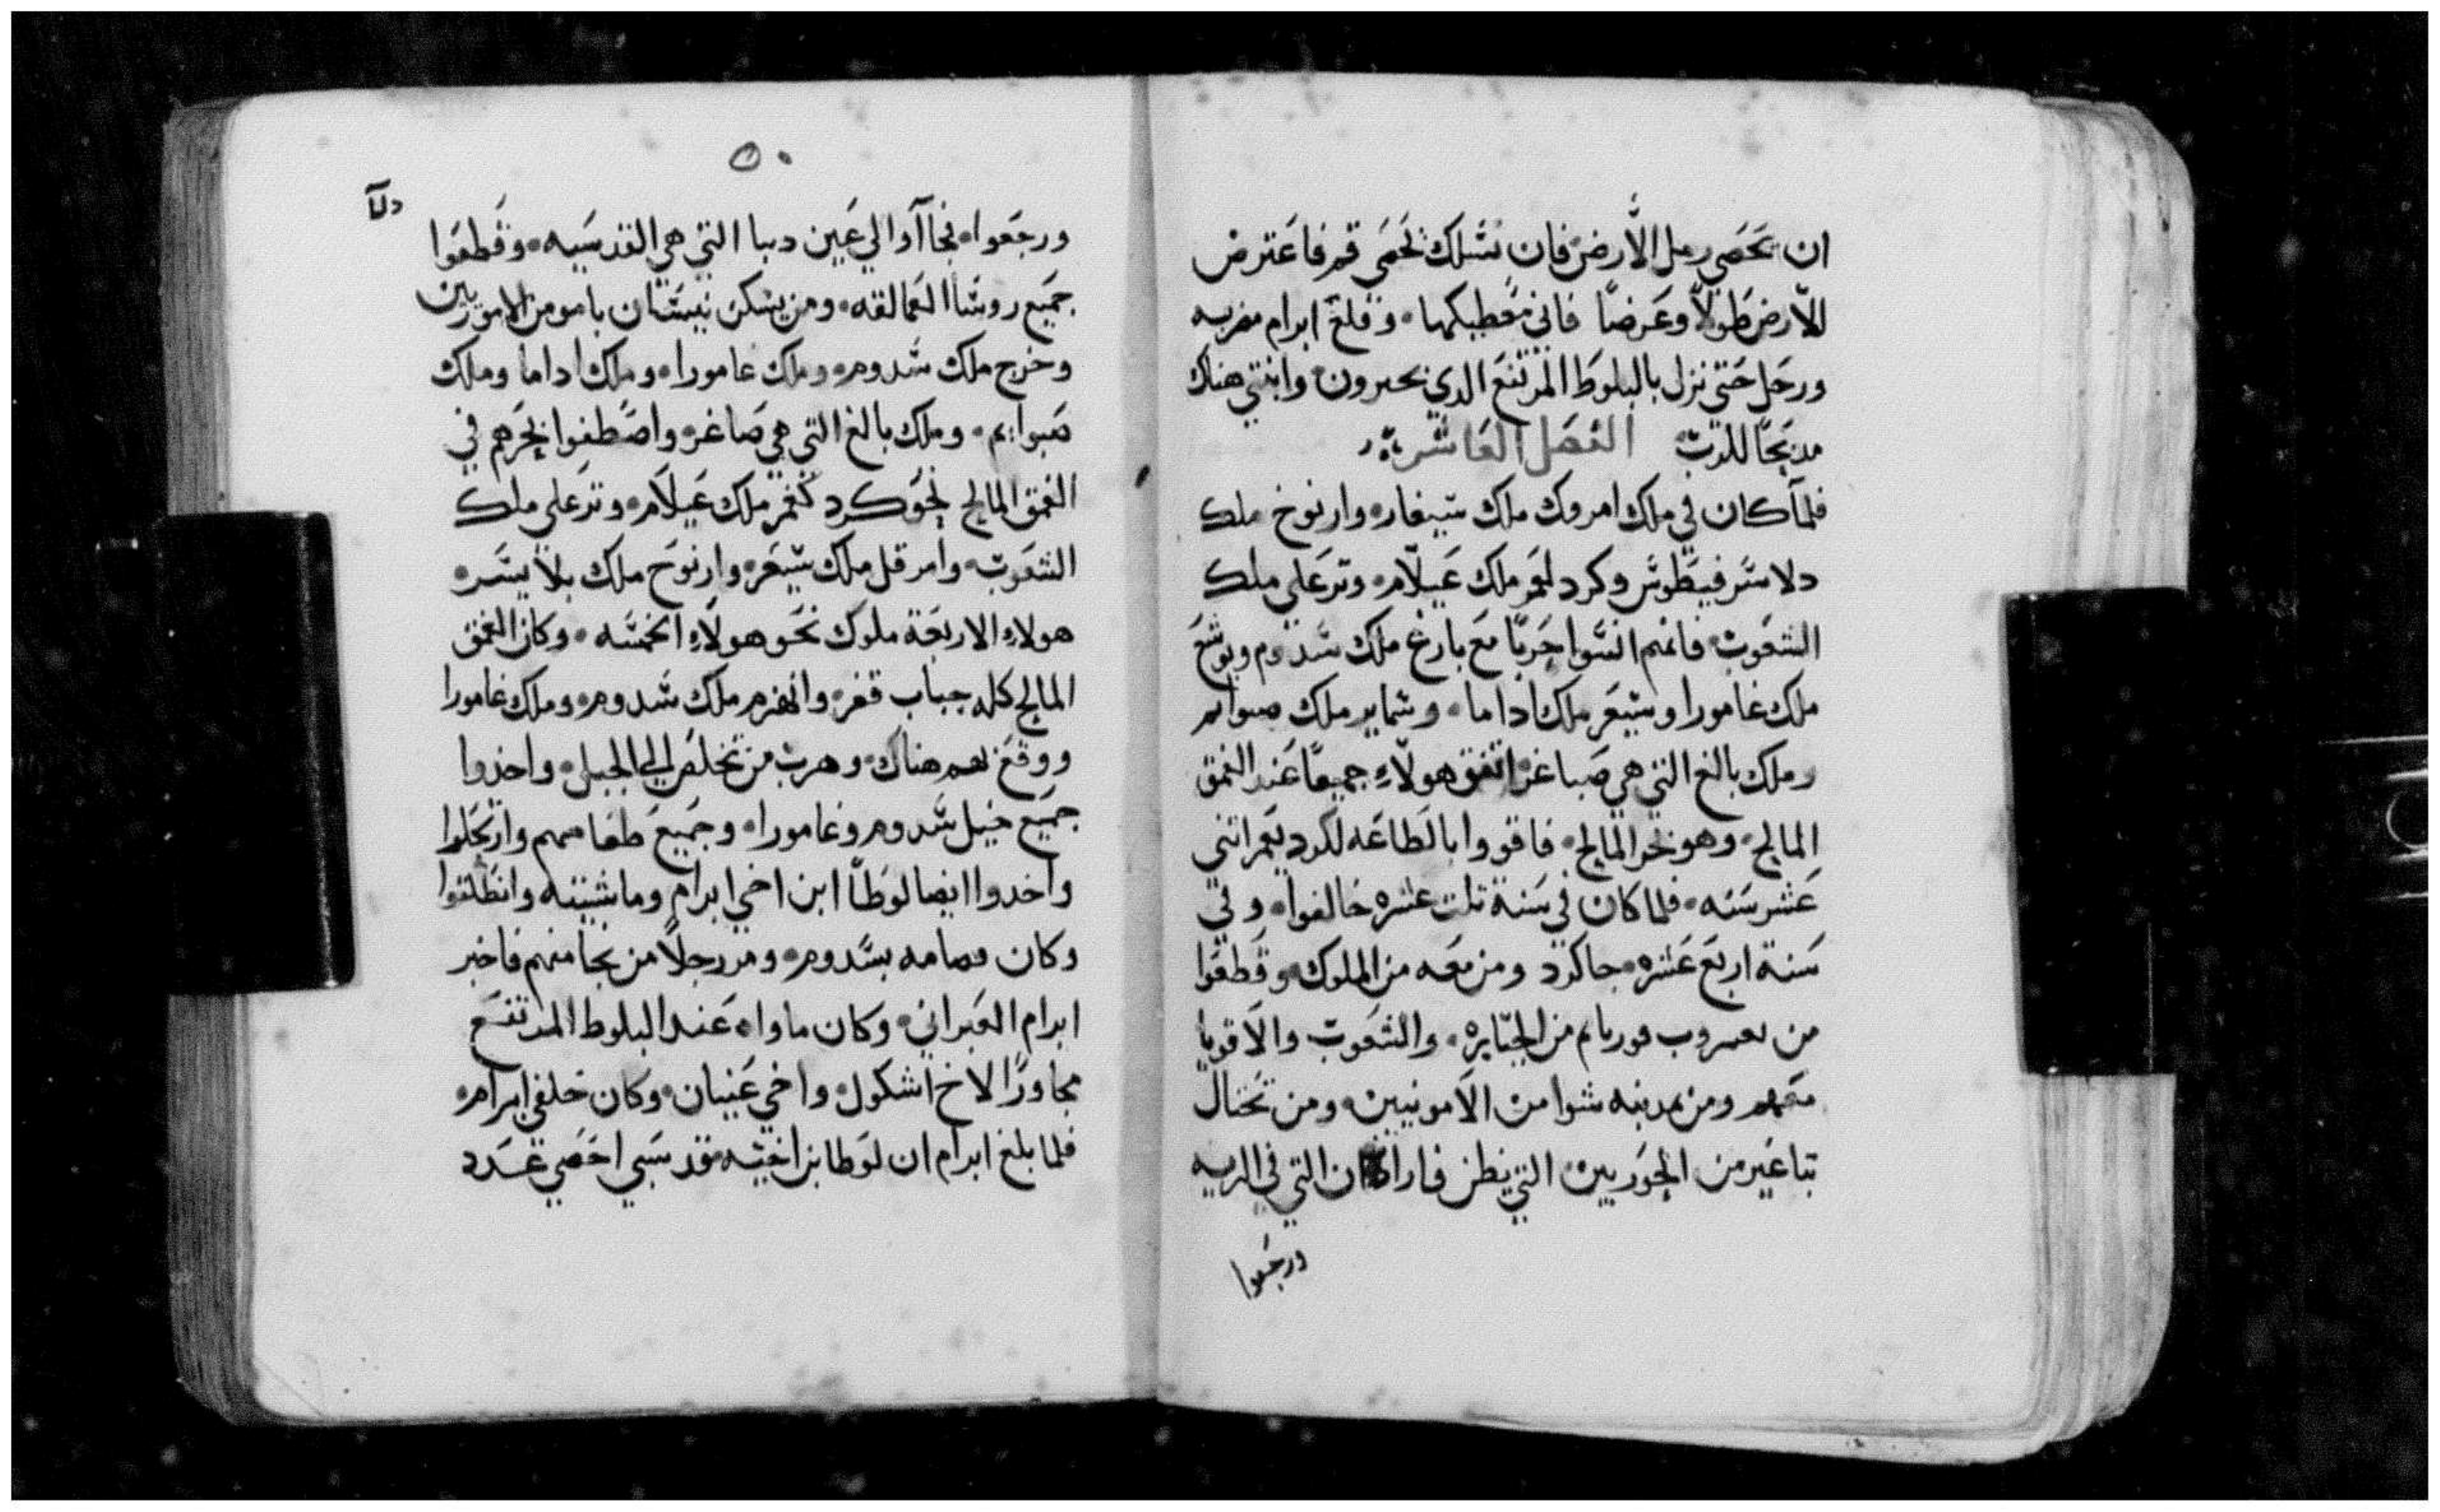 ان يحصي رمل الأرض فان نسلك يحصى قم فاعترض
للأرض طولًا وعرضًا فاني معطيكها وقلع ابرام مضربه
ورحل حتى نزل بالبلوط المرتفع الدي بحبرون وابتني هناك
مدبحًا للرب الفصل العاشر
فلما كان في ملك امروك ملك شيعار وارنوخ ملك
دلاسر فيطوس وكرد لعمر ملك عيلام وترعلي ملك
الشعوب فانهم انسوا حربًا مع بارع ملك سدوم وبوشع
ملك غامورا وشيعر ملك اداما وشماير ملك صبوايم
وملك بالغ التي هي صباغر اتفق هولاء جميعًا عند الغمق
المالح وهو بحر المالح فاقروا بالطاعه لكرد لعمر اتني
عشر سنه فلما كان في سنة تلت عشره خالفوا وفي
سنة اربع عشره جا كرد ومن معه من الملوك وقطعوا
من بعسروب قورنايم من الجبابره والشعوب والاقويا
معهم ومن بمدينه شوا من الامونيين ومن تختال
تباغير من الحوريين التي بطن فاران التي في البريه
ورجعوا
٥٠
ورجعوا فجاآوا الي عين دبا التي هي القدسيه وقطعوا
جميع روسا العمالقه ومن يسكن نيسان بامو من الاموريين
وخرج ملك سدوم وملك عامورا وملك اداما وملك
صبوايم وملك بالغ التي هي صاغر واصطفوا لحربهم في
الغمق المالح نحو كرد لغمر ملك عيلام وترعلي ملك
الشعوب وامرقل ملك شيعر وارنوخ ملك بلاسر
هولاء الاربعة ملوك نحو هولاء الخمسه وكان الغمق
المالح كله جباب قفر وانهزم ملك سدوم وملك غامورا
ووقع بهم هناك وهرب من تخلف الي الجبل واخدوا
جميع خيل سدوم وغامورا وجميع طعامهم وارتحلوا
واخدوا ايضا لوطًا ابن اخي ابرام وماشيته وانطلقوا
وكان مقامه بسدوم ومر رجلًا من نجا منهم فاخبر
ابرام العبراني وكان ماواه عند البلوط المرتفع
مجاورًا لاخ اشكول واخي عنيان وكان خلفي ابرام
فلما بلغ ابرام ان لوطا بن اخيه قد سبي احصي عدد